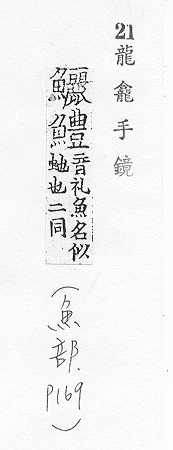 21 龍龕手鏡
鱺鱧音礼魚名似
虵也二同
(魚部 P169)